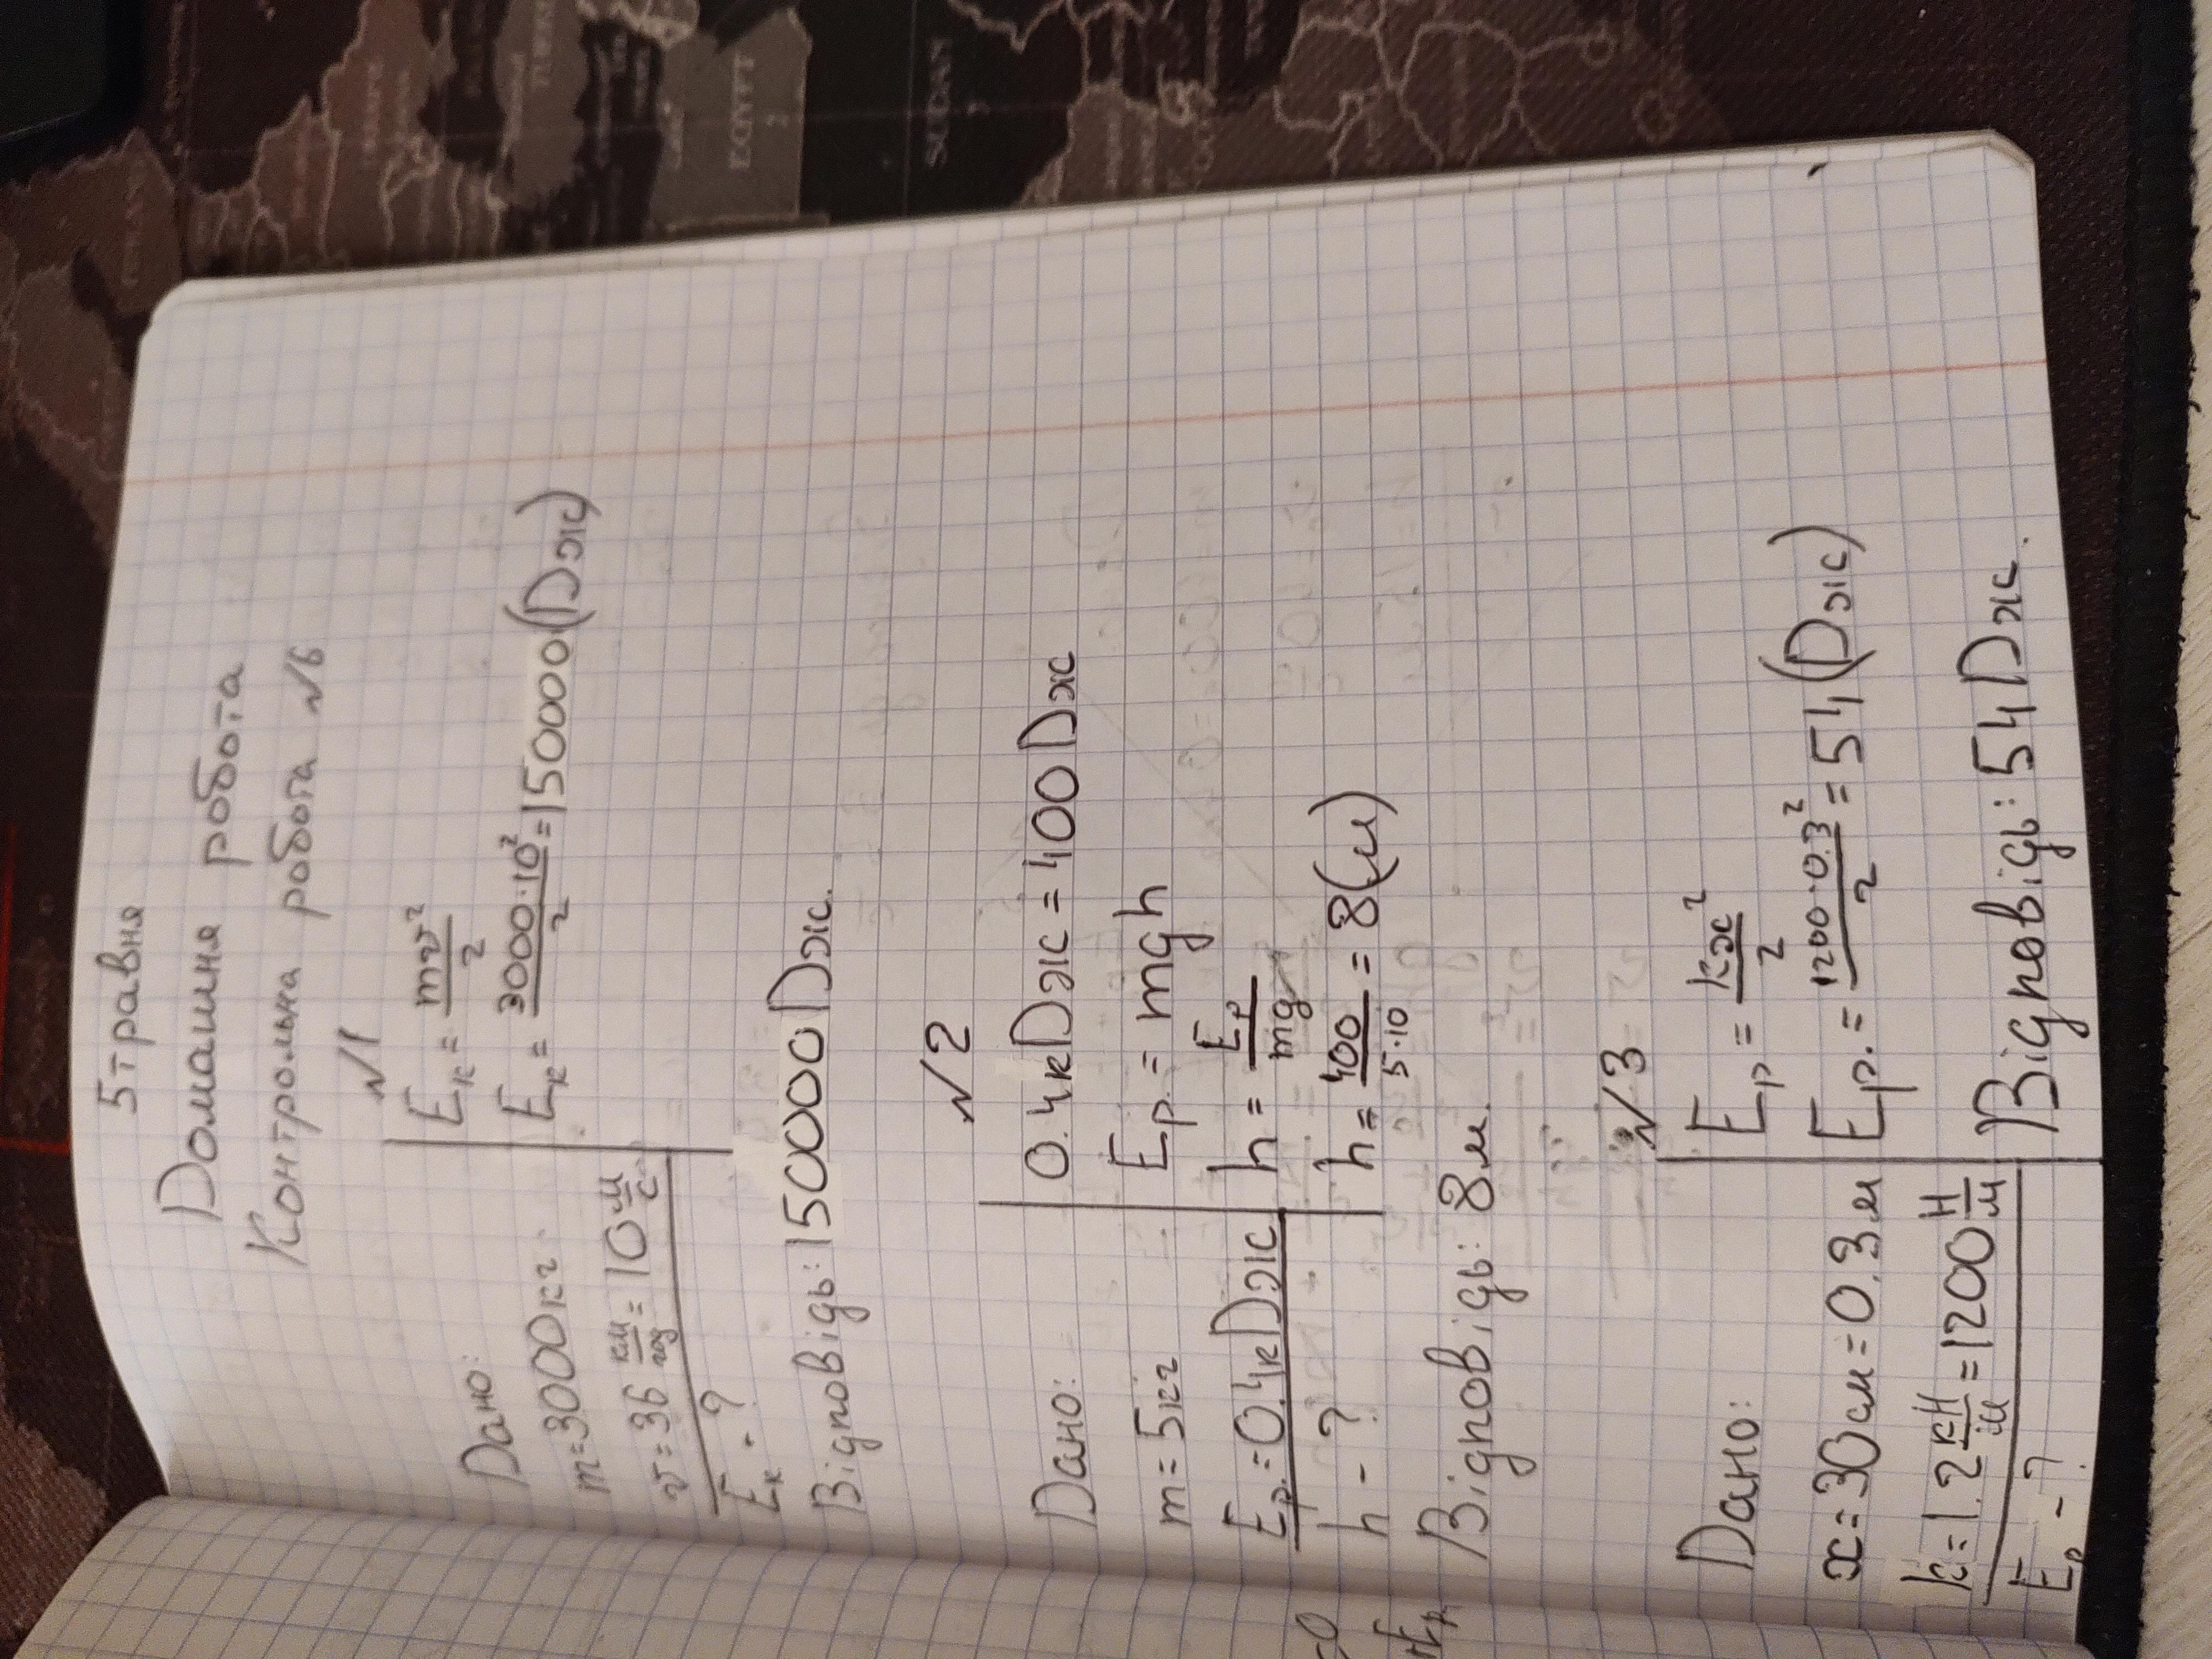 5 травня
Домашня робота
Контрольна робота №6
№1
Дано:
m=3000кг
v=36 км/год=10 м/с
Eк - ?
Eк = mv²/2
Eк = 3000·10²/2=150000(Дж)
Відповідь: 150000Дж.
№2
Дано:
m=5кг
Eр=0.4кДж
h - ?
0.4кДж=400Дж
Eр=mgh
h= Eр/mg
h= 400/5·10 =8(м)
Відповідь: 8м.
№3
Дано:
x=30см=0.3м
k=1.2 кН/м=1200 Н/м
Eр - ?
Eр= kx²/2
Eр.= 1200·0.3²/2=54(Дж)
Відповідь: 54Дж.
EGYPT
SUDAN